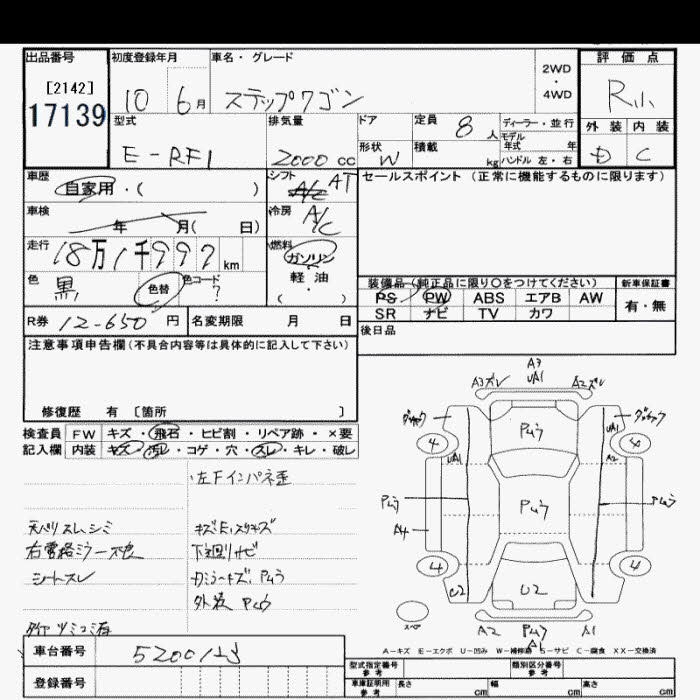 出品番号
[2142]
17139
初度登録年月
10 6月
車名・グレード
ステップワゴン
2WD
・
4WD
評価点
R小
外装 内装
D C
型式
E-RF1
排気量
2000cc
ドア
形状
W
定員
8人
積載
kg
ディーラー・並行
モデル
年式 年
ハンドル 左・右
車歴
自家用・( )
シフト
AT
車検
年 月( 日)
冷房
A/C
走行
18万1千997km
燃料
ガソリン
軽油
( )
色
黒
色替
色コード
?
R券 12-650円
名変期限 月 日
セールスポイント(正常に機能するものに限ります)
装備品(純正品に限り○をつけてください)
新車保証書
PS PW ABS エアB AW
SR ナビ TV カワ
有・無
後日品
注意事項申告欄(不具合内容等は具体的に記入して下さい)
修復歴 有 [箇所 ]
検査員
記入欄
FW キズ・飛石・ヒビ割・リペア跡・×要
内装 キズ・汚レ・コゲ・穴・スレ・キレ・破レ
左Fインパネ歪
天バリスレ、シミ
シートスレ
下廻りサビ
外装 Pムラ
A3
A3ズレ UA1 A2ズレ
4 4
UA1 UA1
A2
Pムラ
Pムラ
Pムラ
Pムラ
A4
4 4
U2 U2
スペア
A2 Pムラ A1
A1
A-キズ E-エクボ U-凹み W-補修跡 S-サビ C-腐食 XX-交換済
車台番号
登録番号
型式指定番号
参考
類別区分番号
参考
車庫証明用
参考
長さ cm
幅 cm
高さ cm